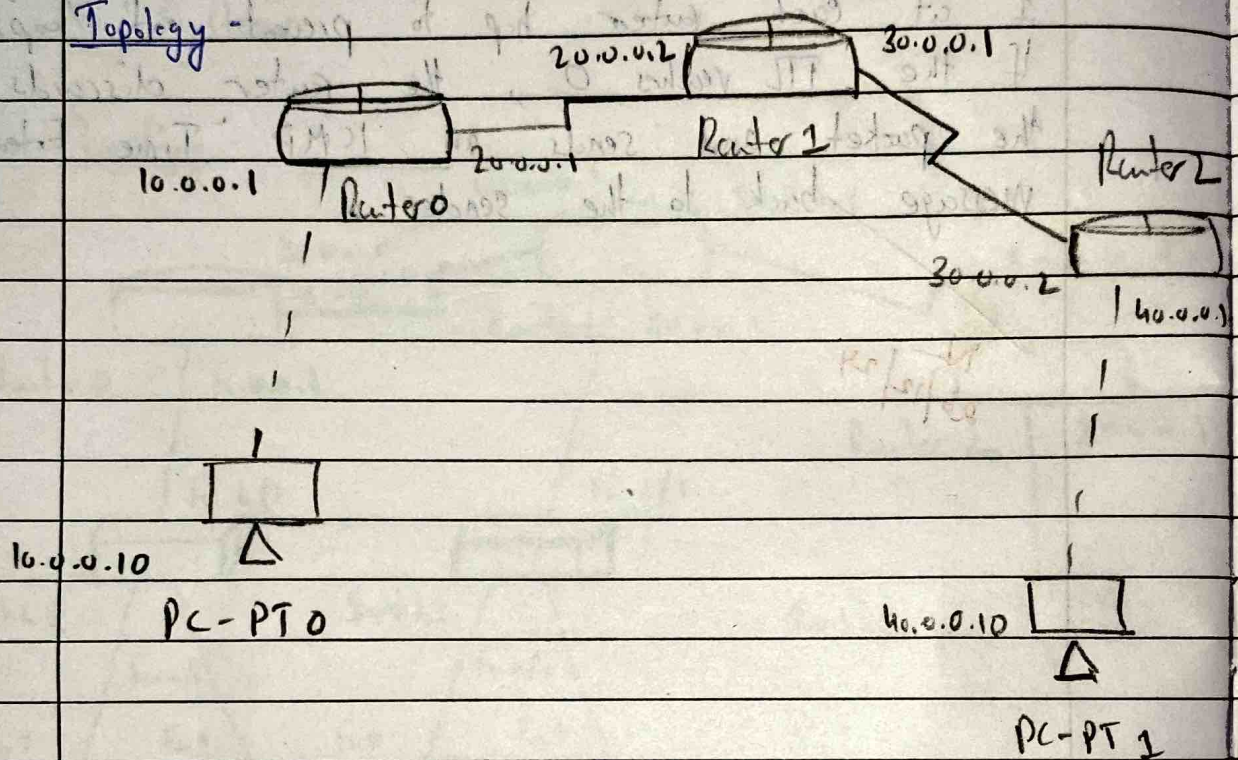 Topology -
20.0.0.2
30.0.0.1
Router 1
20.0.0.1
Router 2
10.0.0.1
Router 0
30.0.0.2
40.0.0.1
10.0.0.10
PC-PT 0
40.0.0.10
PC-PT 1